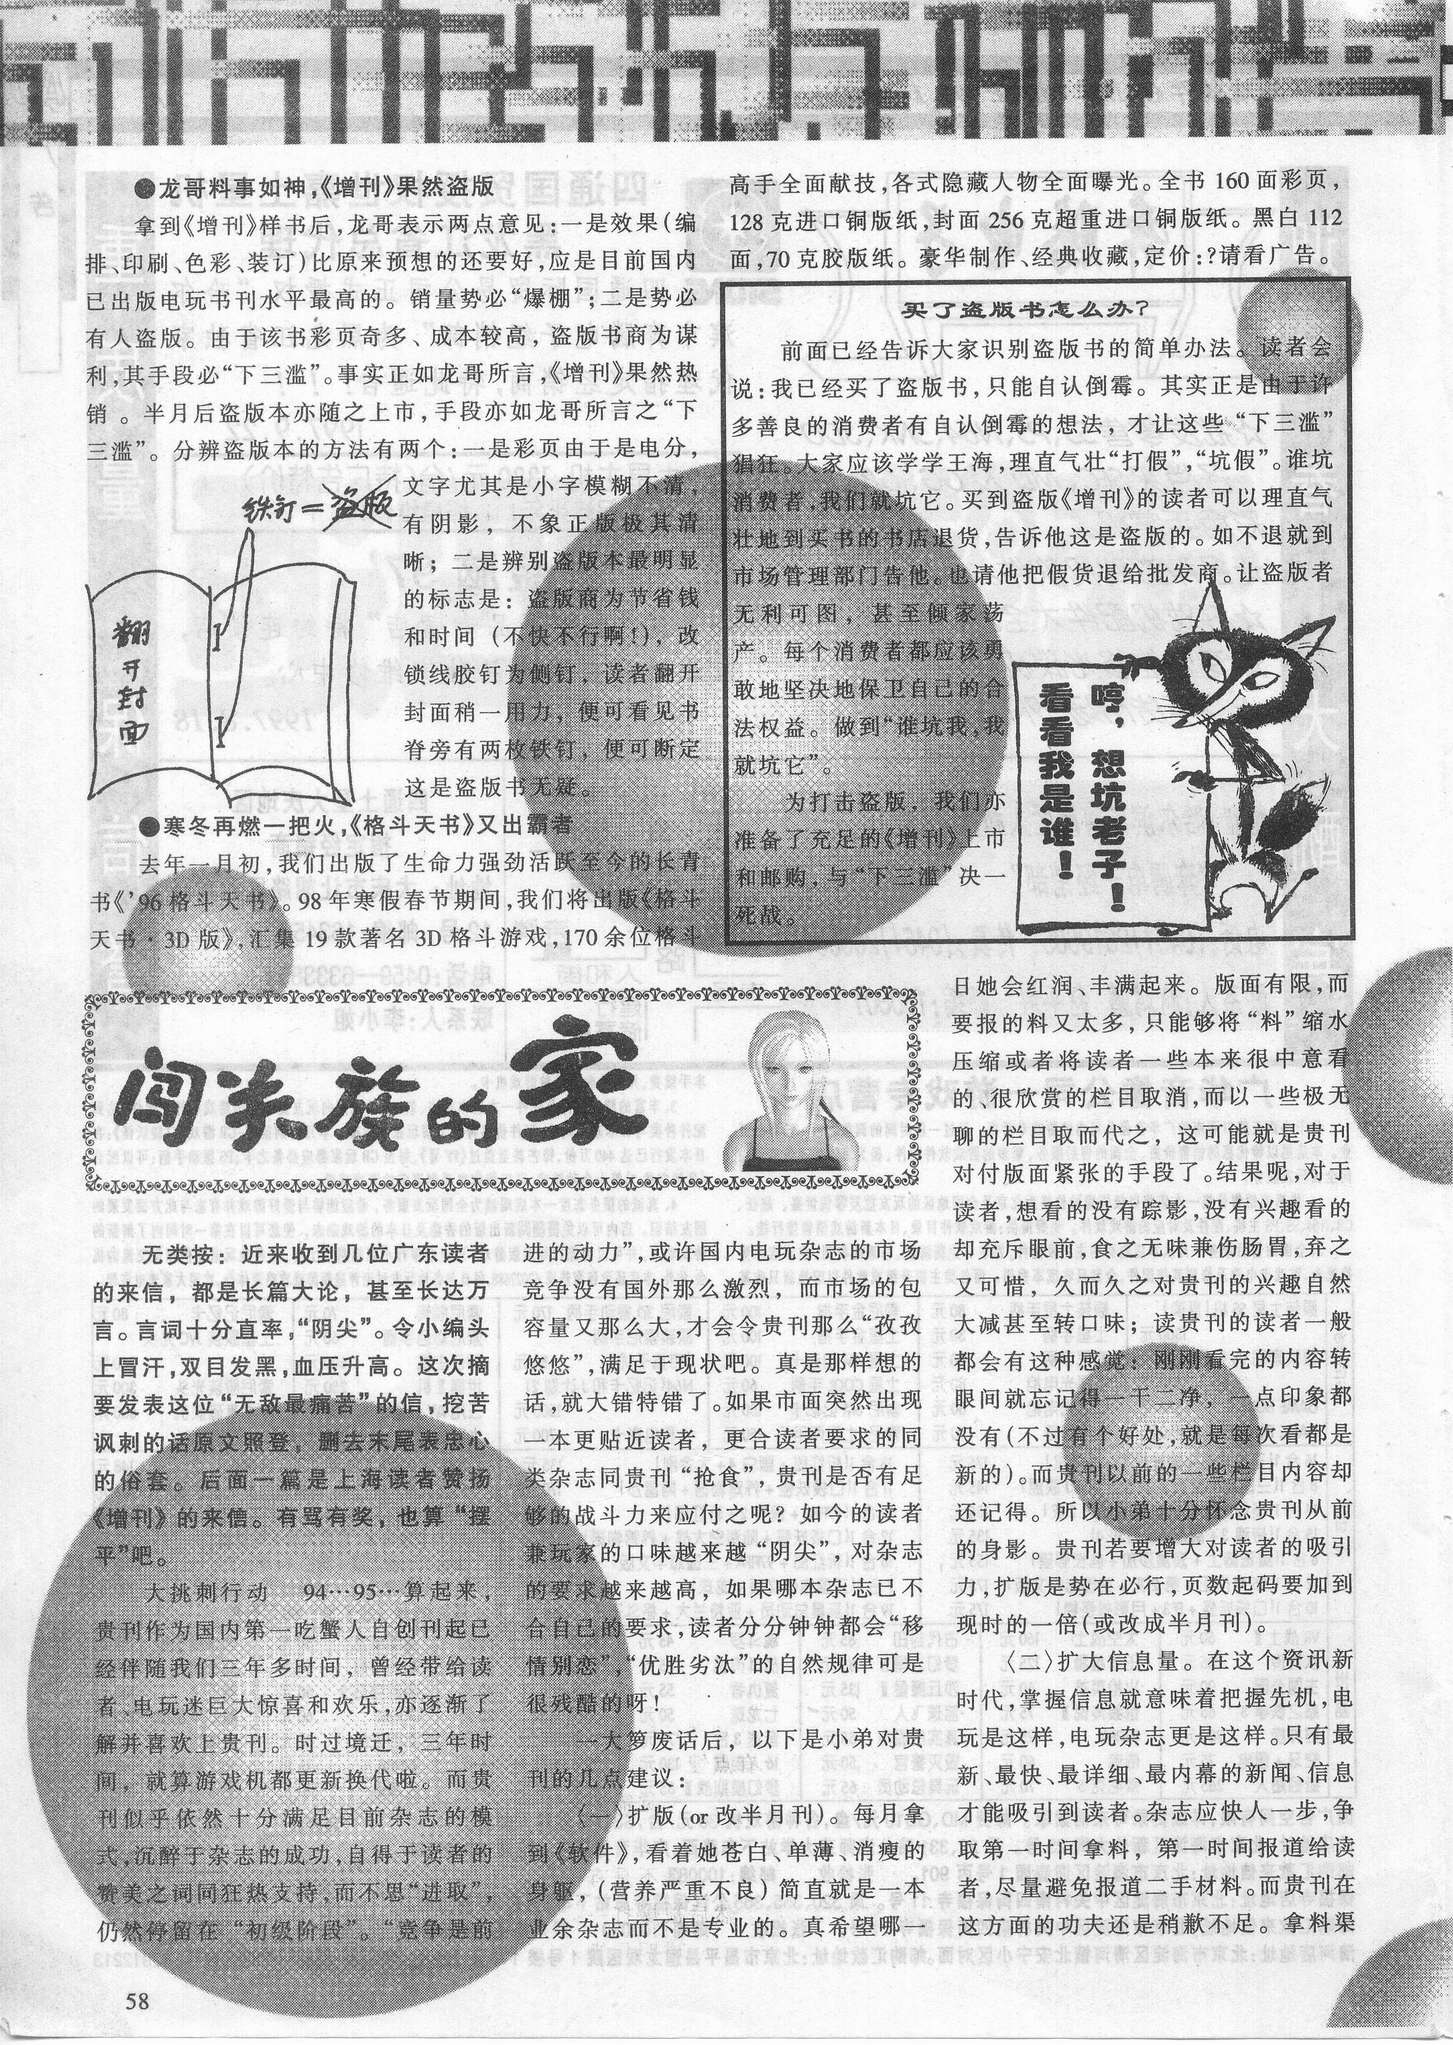 ●龙哥料事如神,《增刊》果然盗版
拿到《增刊》样书后,龙哥表示两点意见:一是效果(编
排、印刷、色彩、装订)比原来预想的还要好,应是目前国内
已出版电玩书刊水平最高的。销量势必“爆棚”;二是势必
有人盗版。由于该书彩页奇多、成本较高,盗版书商为谋
利,其手段必“下三滥”。事实正如龙哥所言,《增刊》果然热
销。半月后盗版本亦随之上市,手段亦如龙哥所言之“下
三滥”。分辨盗版本的方法有两个:一是彩页由于是电分,
文字尤其是小字模糊不清,
有阴影,不象正版极其清
晰;二是辨别盗版本最明显
的标志是:盗版商为节省钱
和时间(不快不行啊!),改
锁线胶钉为侧钉,读者翻开
封面稍一用力,便可看见书
脊旁有两枚铁钉,便可断定
这是盗版书无疑。
铁钉=盗版
翻开封面
●寒冬再燃一把火,《格斗天书》又出霸者
去年一月初,我们出版了生命力强劲活跃至今的长青
书《’96格斗天书》。98年寒假春节期间,我们将出版《格斗
天书·3D版》,汇集19款著名3D格斗游戏,170余位格斗
高手全面献技,各式隐藏人物全面曝光。全书160面彩页,
128克进口铜版纸,封面256克超重进口铜版纸。黑白112
面,70克胶版纸。豪华制作、经典收藏,定价:?请看广告。
买了盗版书怎么办?
前面已经告诉大家识别盗版书的简单办法。读者会
说:我已经买了盗版书,只能自认倒霉。其实正是由于许
多善良的消费者有自认倒霉的想法,才让这些“下三滥”
猖狂。大家应该学学王海,理直气壮“打假”,“坑假”。谁坑
消费者,我们就坑它。买到盗版《增刊》的读者可以理直气
壮地到买书的书店退货,告诉他这是盗版的。如不退就到
市场管理部门告他。也请他把假货退给批发商。让盗版者
无利可图,甚至倾家荡
产。每个消费者都应该勇
敢地坚决地保卫自己的合
法权益。做到“谁坑我,我
就坑它”。
为打击盗版,我们亦
准备了充足的《增刊》上市
和邮购,与“下三滥”决一
死战。
哼,想坑老子!
看看我是谁!
闯关族的家
无类按:近来收到几位广东读者
的来信,都是长篇大论,甚至长达万
言。言词十分直率,“阴尖”。令小编头
上冒汗,双目发黑,血压升高。这次摘
要发表这位“无敌最痛苦”的信,挖苦
讽刺的话原文照登,删去末尾表忠心
的俗套。后面一篇是上海读者赞扬
《增刊》的来信。有骂有奖,也算“摆
平”吧。
大挑刺行动 94…95…算起来,
贵刊作为国内第一吃蟹人自创刊起已
经伴随我们三年多时间,曾经带给读
者、电玩迷巨大惊喜和欢乐,亦逐渐了
解并喜欢上贵刊。时过境迁,三年时
间,就算游戏机都更新换代啦。而贵
刊似乎依然十分满足目前杂志的模
式,沉醉于杂志的成功,自得于读者的
赞美之词同狂热支持,而不思“进取”,
仍然停留在“初级阶段”。“竞争是前
进的动力”,或许国内电玩杂志的市场
竞争没有国外那么激烈,而市场的包
容量又那么大,才会令贵刊那么“孜孜
悠悠”,满足于现状吧。真是那样想的
话,就大错特错了。如果市面突然出现
一本更贴近读者,更合读者要求的同
类杂志同贵刊“抢食”,贵刊是否有足
够的战斗力来应付之呢?如今的读者
兼玩家的口味越来越“阴尖”,对杂志
的要求越来越高,如果哪本杂志已不
合自己的要求,读者分分钟钟都会“移
情别恋”,“优胜劣汰”的自然规律可是
很残酷的呀!
一大箩废话后,以下是小弟对贵
刊的几点建议:
〈一〉扩版(or改半月刊)。每月拿
到《软件》,看着她苍白、单薄、消瘦的
身躯,(营养严重不良)简直就是一本
业余杂志而不是专业的。真希望哪一
日她会红润、丰满起来。版面有限,而
要报的料又太多,只能够将“料”缩水
压缩或者将读者一些本来很中意看
的、很欣赏的栏目取消,而以一些极无
聊的栏目取而代之,这可能就是贵刊
对付版面紧张的手段了。结果呢,对于
读者,想看的没有踪影,没有兴趣看的
却充斥眼前,食之无味兼伤肠胃,弃之
又可惜,久而久之对贵刊的兴趣自然
大减甚至转口味;读贵刊的读者一般
都会有这种感觉:刚刚看完的内容转
眼间就忘记得一干二净,一点印象都
没有(不过有个好处,就是每次看都是
新的)。而贵刊以前的一些栏目内容却
还记得。所以小弟十分怀念贵刊从前
的身影。贵刊若要增大对读者的吸引
力,扩版是势在必行,页数起码要加到
现时的一倍(或改成半月刊)。
〈二〉扩大信息量。在这个资讯新
时代,掌握信息就意味着把握先机,电
玩是这样,电玩杂志更是这样。只有最
新、最快、最详细、最内幕的新闻、信息
才能吸引到读者。杂志应快人一步,争
取第一时间拿料,第一时间报道给读
者,尽量避免报道二手材料。而贵刊在
这方面的功夫还是稍歉不足。拿料渠
58